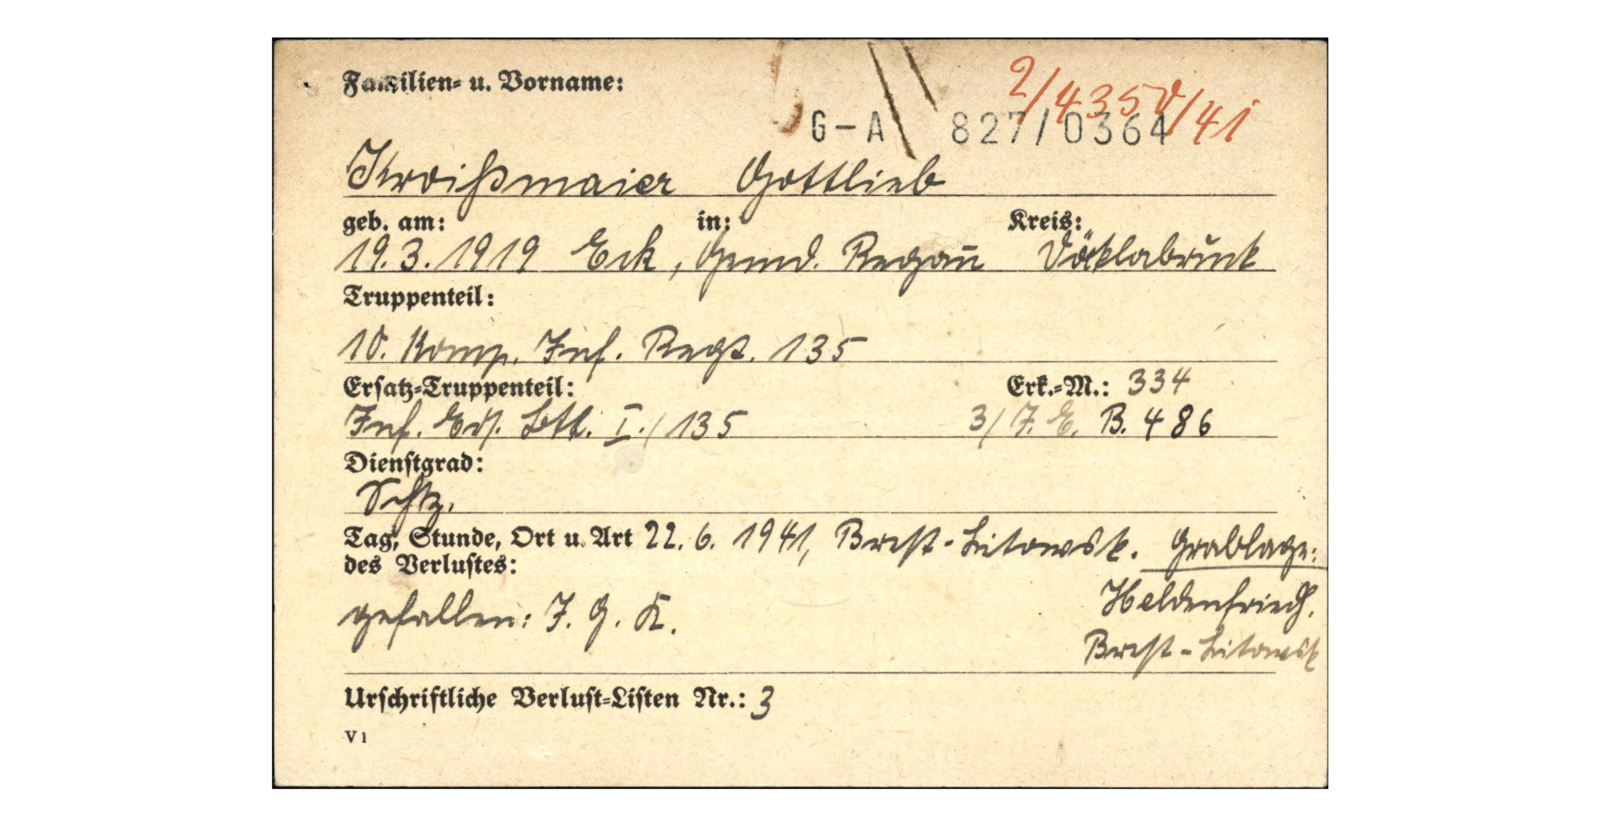 Familien- u. Vorname:
2/4350/41
G-A 827/0364
Kroißmaier Gottlieb
geb. am: in: Kreis:
19.3.1919 Eck, Gmnd. Regau Vöcklabruck
Truppenteil:
10. Komp. Inf. Regt. 135
Ersatz-Truppenteil: Erk.-M.: 334
Inf. Ers. Btl. I./135 3/J. E. B. 486
Dienstgrad:
Schtz.
Tag, Stunde, Ort u. Art 22. 6. 1941, Brest-Litowsk. Grablage:
des Verlustes:
Heldenfriedh.
gefallen: I. G. K.
Brest-Litowsk
Urschriftliche Verlust-Listen Nr.: 3
V 1